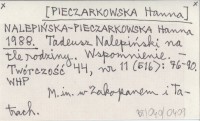 [PIECZARKOWSKA Hanna]
NALEPIŃSKA-PIECZARKOWSKA Hanna
1988. Tadeusz Nalepiński na
tle rodziny. Wspomnienie. -
Twórczość 44, nr 11 (516): 76-90.
WHP
M.in. w Zakopanem i Ta-
trach.